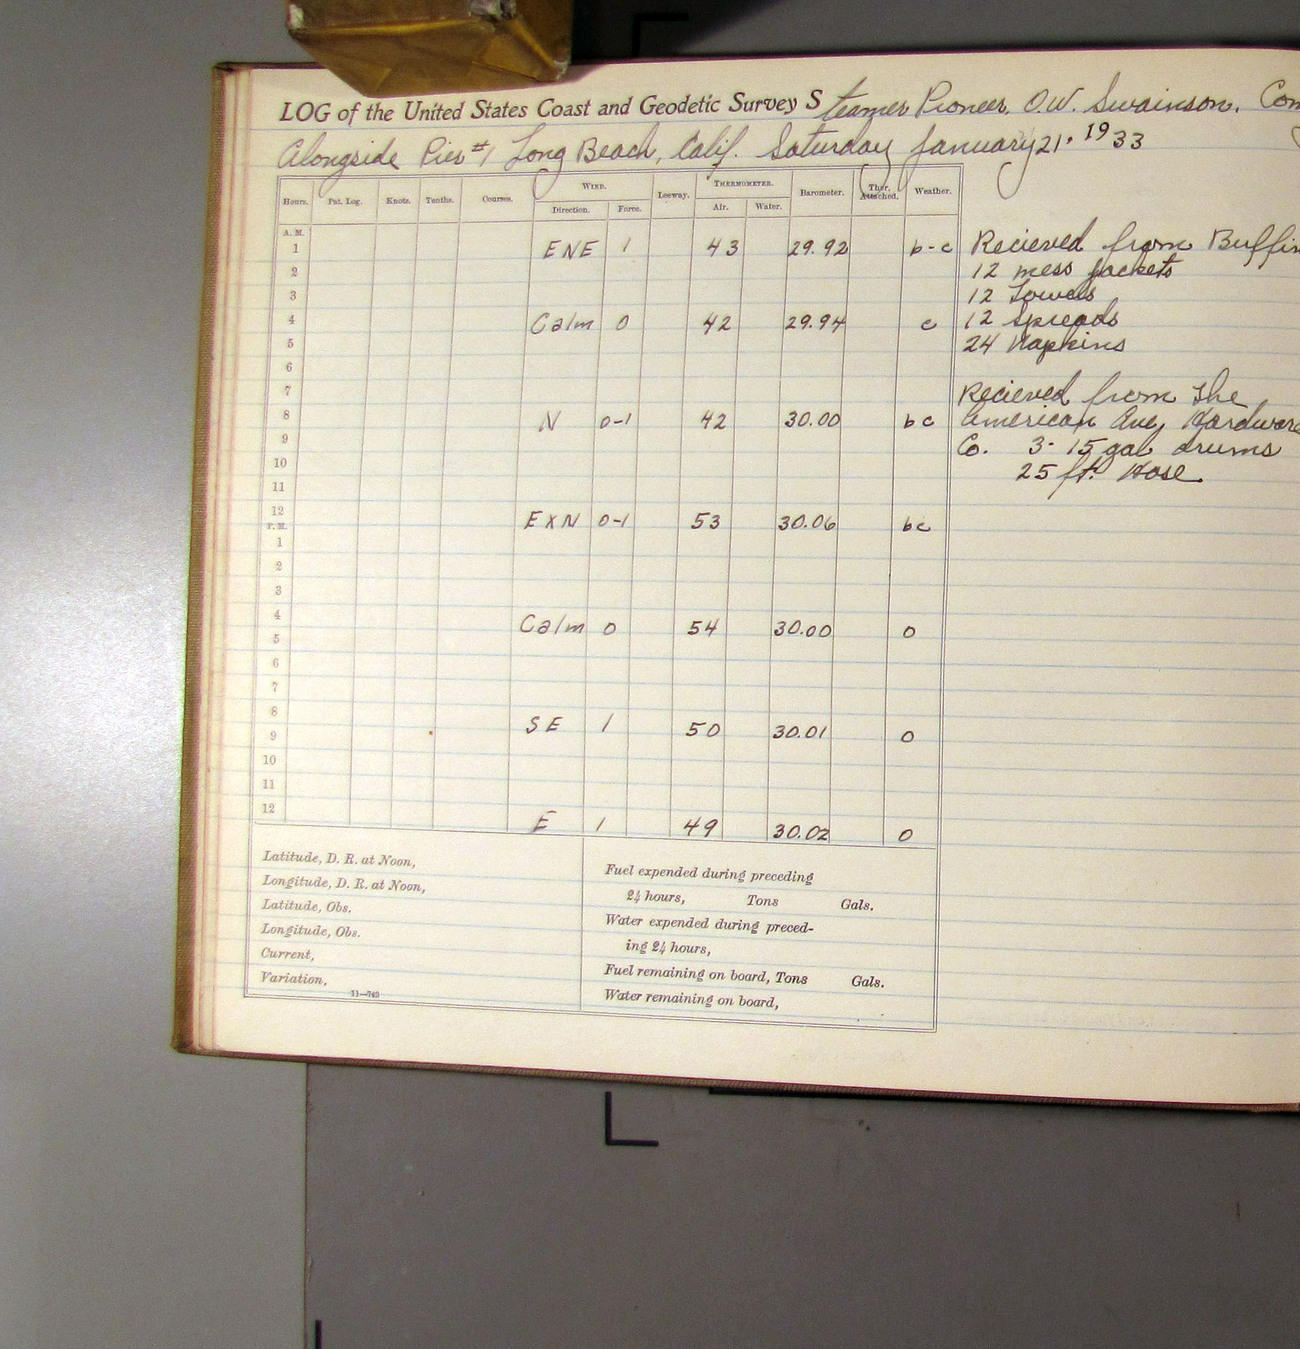 LOG of the United States Coast and Geodetic Survey Steamer Pioneer, O.W. Swainson, Com
Alongside Pier #1 Long Beach, Calif. Saturday January 21, 1933
Hours. Pat. Log. Knots. Tenths. Courses. WIND. Leeway. THERMOMETER. Barometer. Ther. Attached. Weather.
Direction. Force. Air. Water.
A. M.
1 ENE 1 43 29.92 b-c Recieved from Buffin
2 12 mess Jackets
3 12 Towels
4 Calm 0 42 29.94 c 12 Spreads
5 24 Napkins
6
7 Recieved from the
8 N 0-1 42 30.00 bc American Ave, Hardware
9 Co. 3- 15 gal drums
10 25 ft. Hose
11
12 EXN 0-1 53 30.06 bc
P. M.
1
2
3
4 Calm 0 54 30.00 0
5
6
7
8 SE 1 50 30.01 0
9
10
11
12 E 1 49 30.02 0
Latitude, D. R. at Noon,
Longitude, D. R. at Noon,
Latitude, Obs.
Longitude, Obs.
Current,
Variation,
11—742
Fuel expended during preceding
24 hours, Tons Gals.
Water expended during preced-
ing 24 hours,
Fuel remaining on board, Tons Gals.
Water remaining on board,